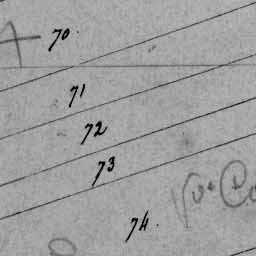 70.
71
72
73
74.